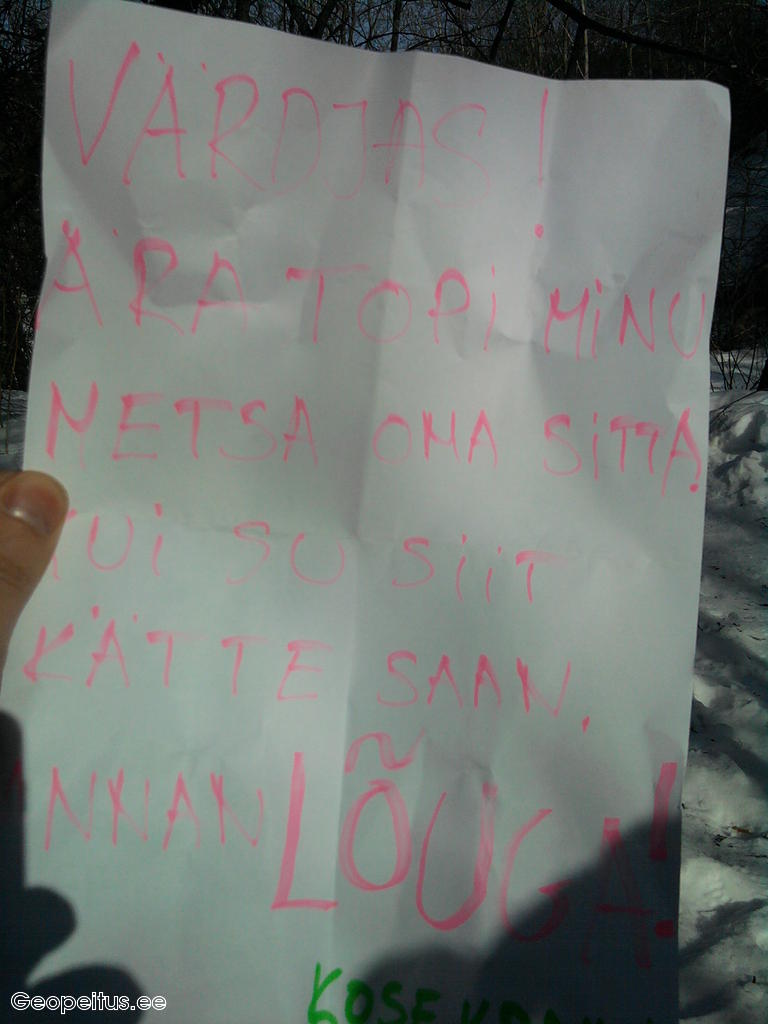 VÄRDJAS!
ÄRA TOPI MINU
METSA OMA SITTA.
KUI SU SIIT
KÄTTE SAAN,
ANNAN LÕUGA!
KOSE
Geopeitus.ee